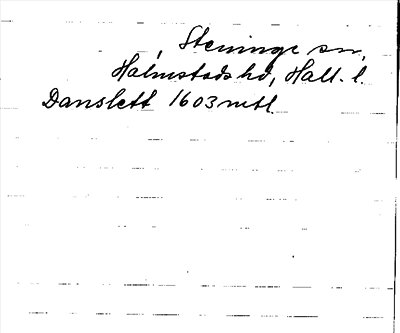 , Steninge sn,
Halmstads hd, Hall. l.
Danslett 1603 mtl.